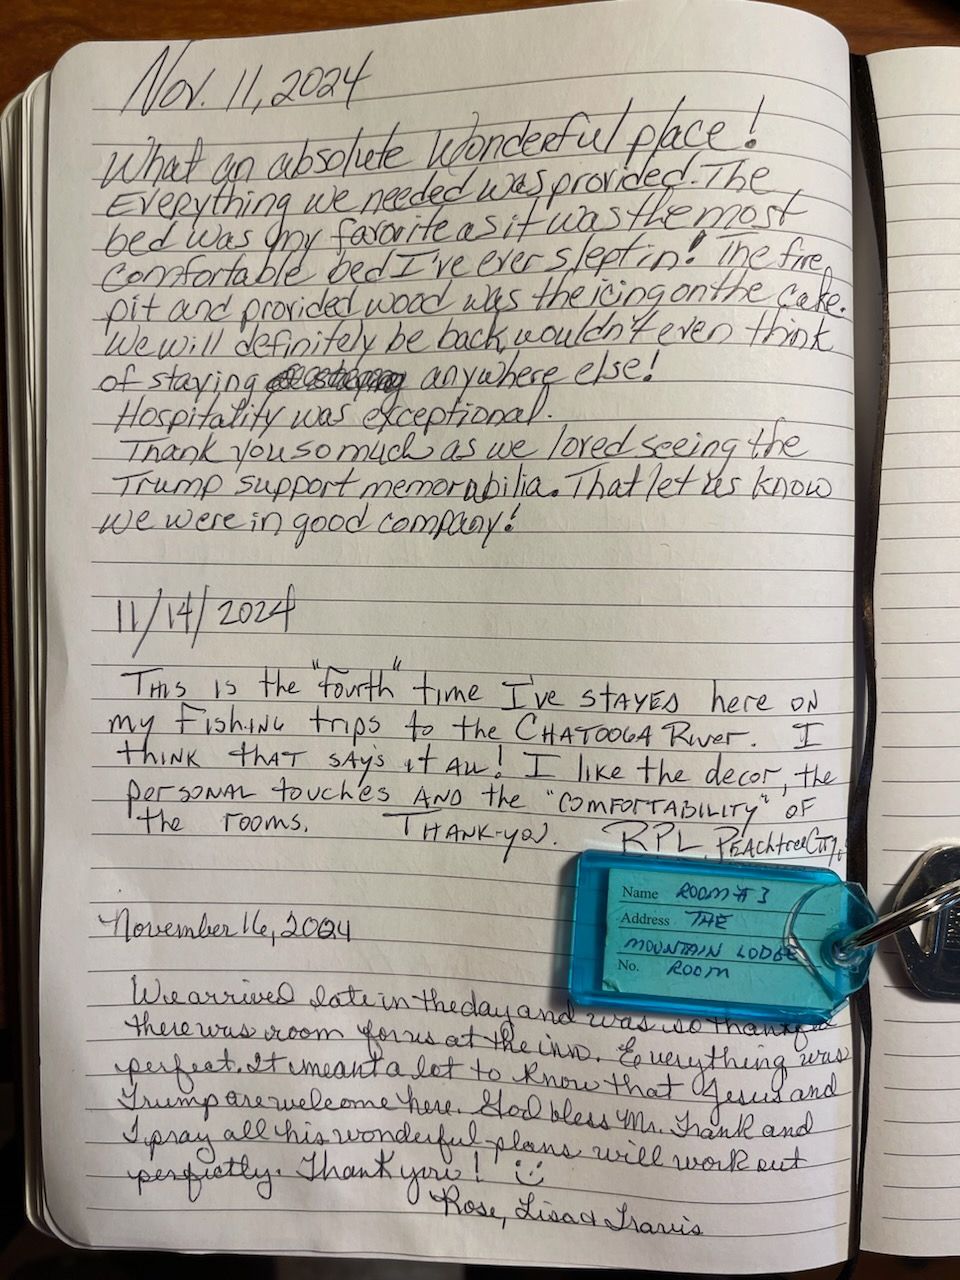 Nov. 11, 2024
What an absolute Wonderful place!
Everything we needed was provided. The
bed was my favorite as it was the most
comfortable bed I've ever slept in! The fire
pit and provided wood was the icing on the cake.
We will definitely be back, wouldn't even think
of staying anywhere else!
Hospitality was exceptional.
Thank you so much as we loved seeing the
Trump support memorabilia. That let us know
we were in good company!
11/14/2024
This is the "fourth" time I've stayes here on
my fishing trips to the Chatooga River. I
think that say's it all! I like the decor, the
personal touches and the "comfortability" of
the rooms. Thank-you. RPL, Peachtree City,
November 16, 2024
We arrived late in the day and was so thankful
there was room for us at the inn. Everything was
perfect. It meant a lot to know that Jesus and
Trump are welcome here. God bless Mr. Frank and
I pray all his wonderful plans will work out
perfectly. Thank you!
Rose, Lisa & Travis
Name ROOM # 3
Address THE
MOUNTAIN LODGE
No. ROOM